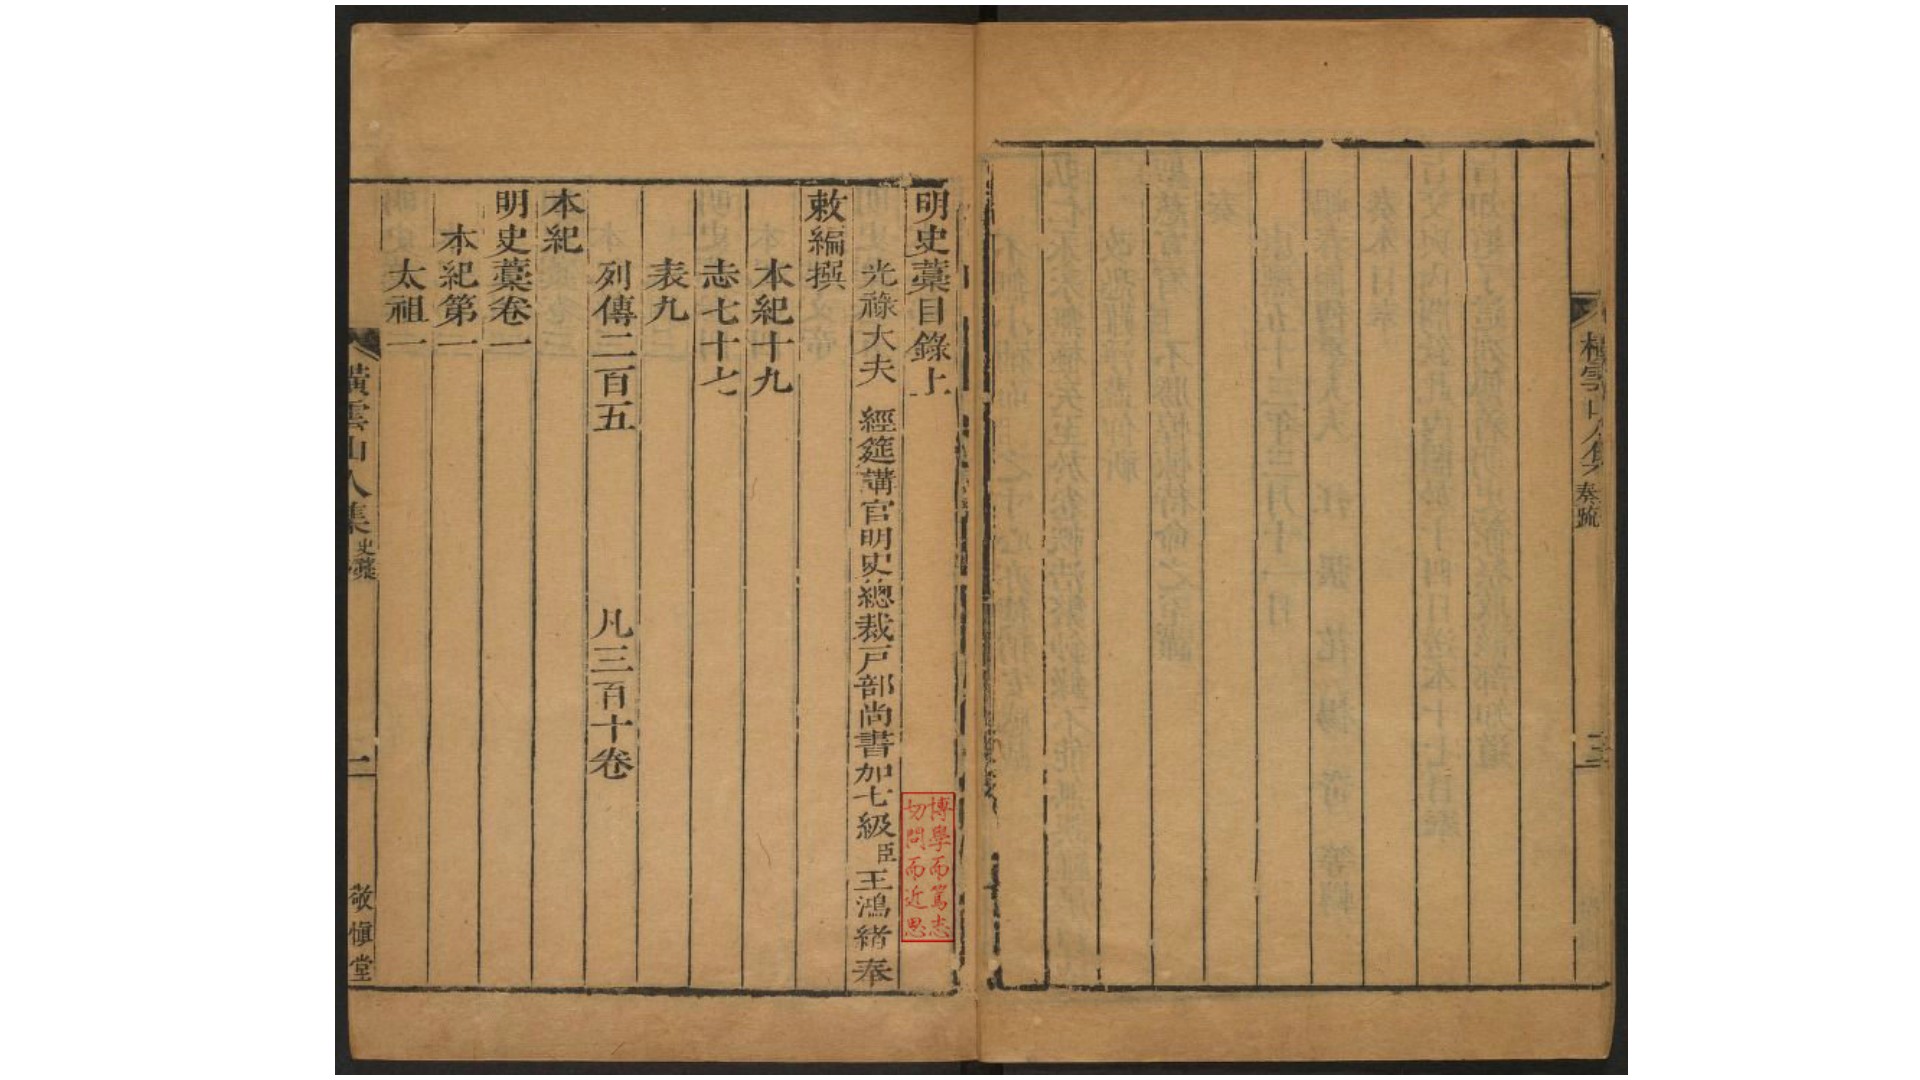 橫雲山人集 奏疏
三
明史藁目錄上
光祿大夫 經筵講官明史總裁戸部尚書加七級臣王鴻緒奉
敕編撰
本紀十九
志七十七
表九
列傳二百五 凡三百十卷
本紀
明史藁卷一
本紀第一
太祖一
橫雲山人集 史藁
一
敬慎堂
博學而篤志
切問而近思